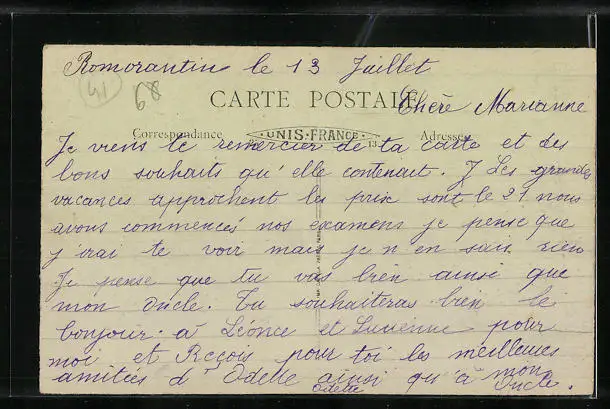 Romorantin le 13 Juillet
41
68
CARTE POSTALE
Chère Marianne
Correspondance
UNIS-FRANCE
Adresse
13
Je viens te remercier de ta carte et des
bons souhaits qu'elle contenait. Les grandes
vacances approchent les prix sont le 21 nous
avons commencés nos examens je pense que
j'irai te voir mais je n'en sais rien
Je pense que tu vas bien ainsi que
mon oncle. Tu souhaiteras bien le
bonjour à Léonce et Lucienne pour
moi et Reçois pour toi les meilleures
amitiés d'Odette ainsi qu'à mon
Odette oncle.